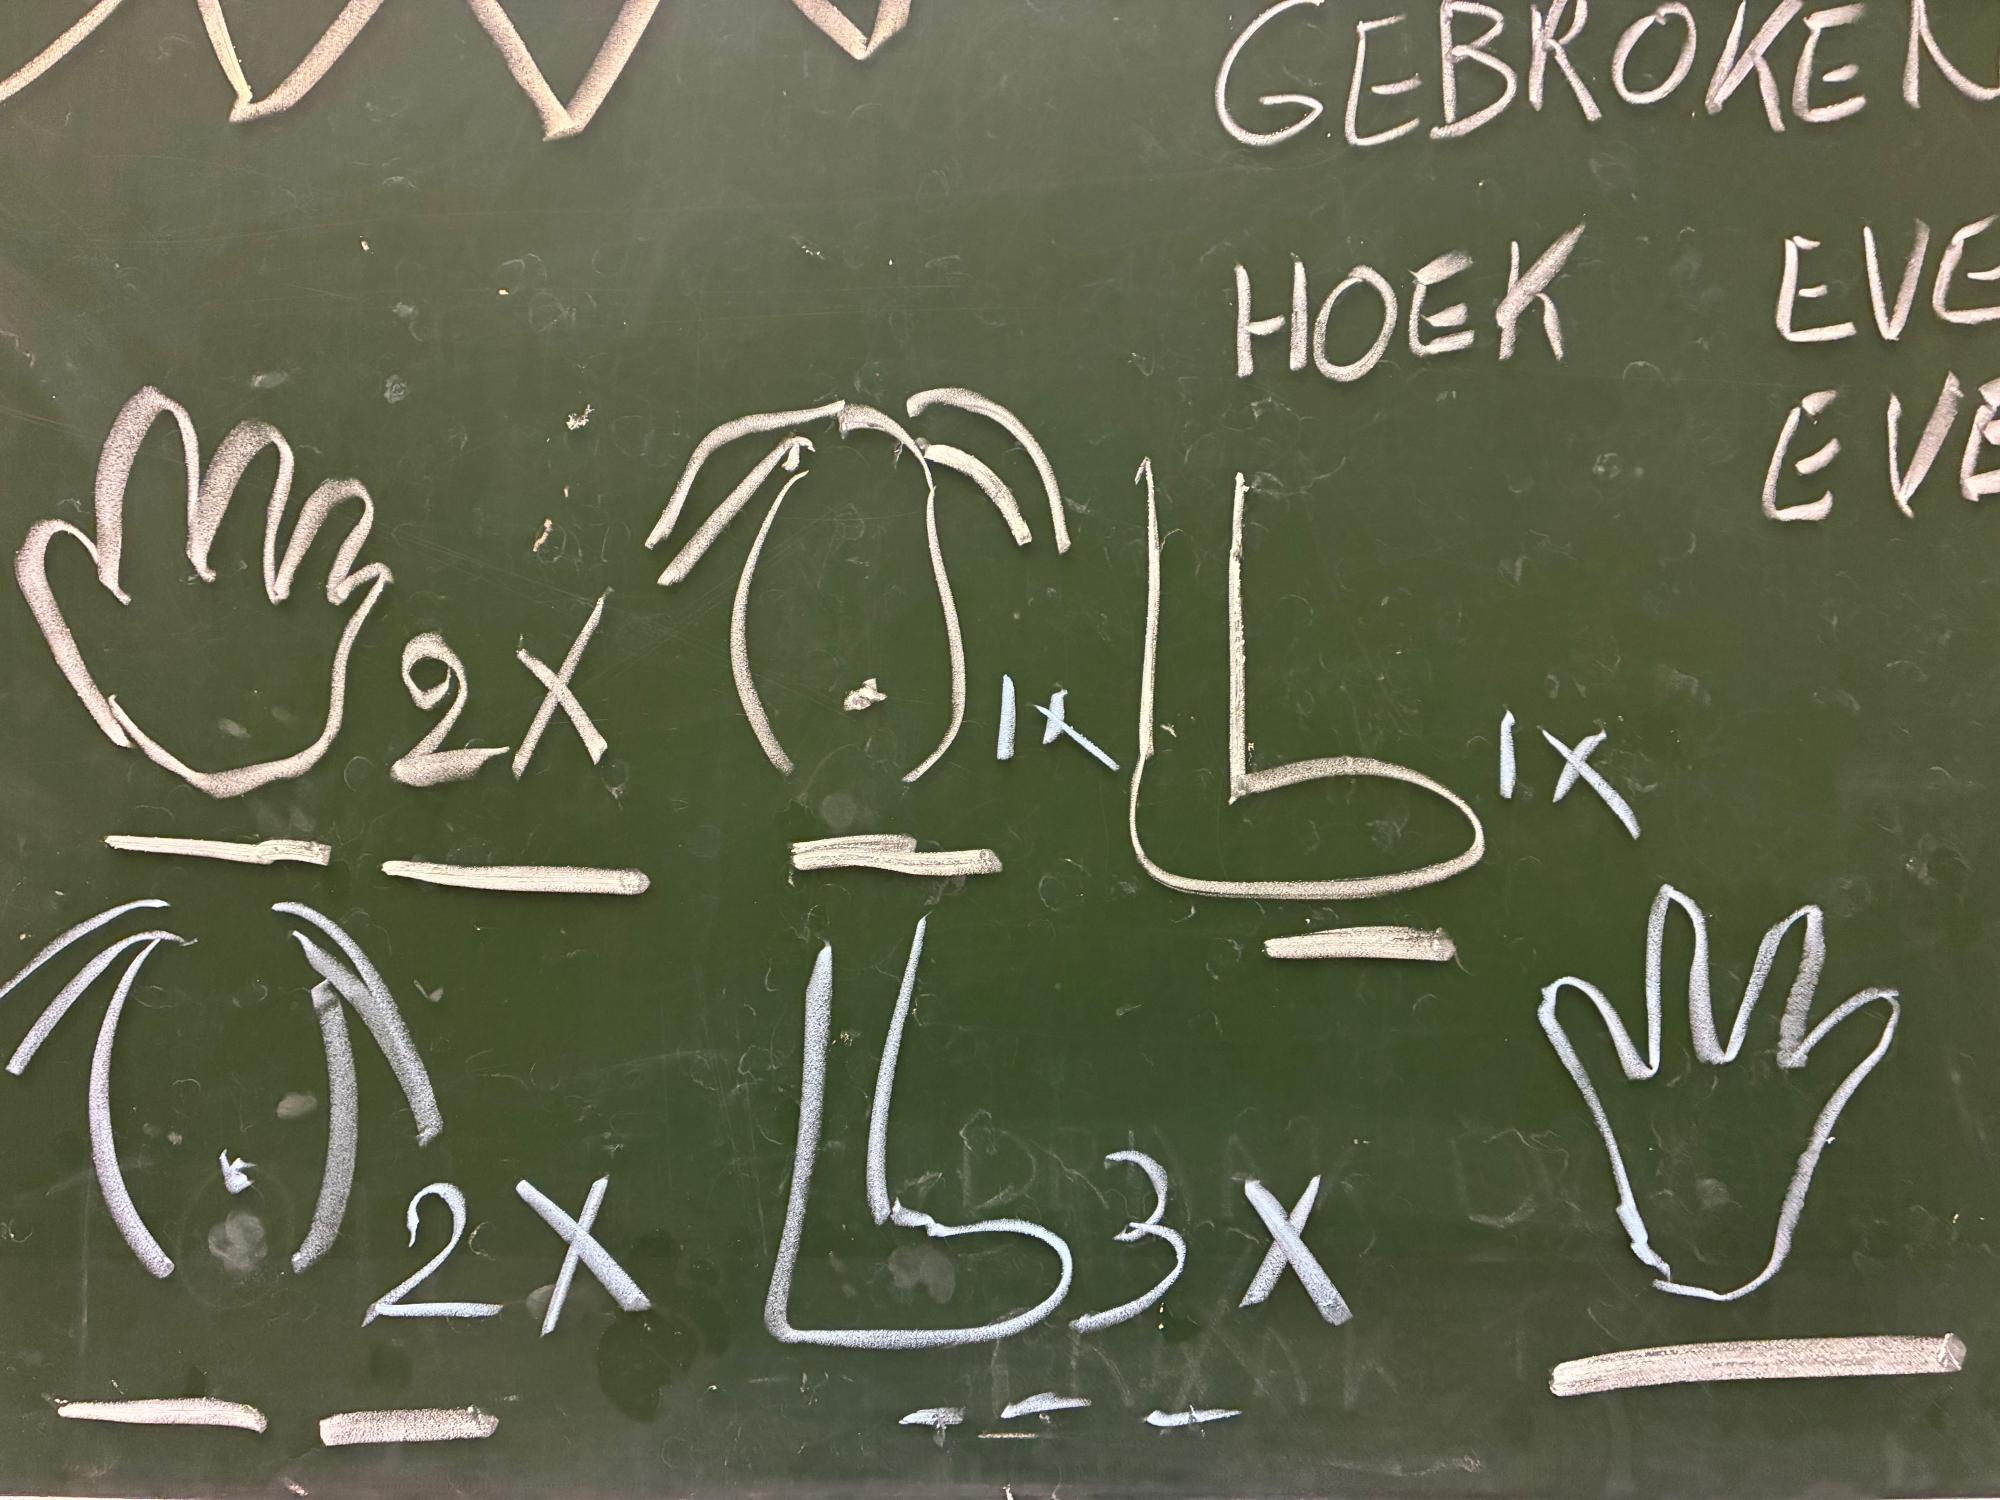 GEBROKEN
HOEK EVE
EVE
2X 1X 1X
2X 3X